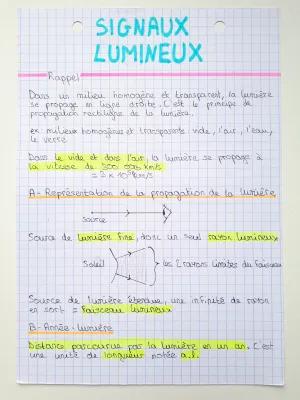 SIGNAUX
LUMINEUX
Rappel
Dans un milieu homogène et transparent, la lumière
se propage en ligne droite. C'est le principe de
propagation rectiligne de la lumière.
ex milieux homogènes et transparents vide, l'air, l'eau,
le verre
Dans le vide et dans l'air, la lumière se propage à
la vitesse de 300 000 km/s
A - Représentation de la propagation de la lumière
Source
Source de lumière fine, donc un seul rayon lumineux
Soleil
les 2 rayons limites du faisceau
Source de lumière étendue, une infinité de rayon
en sort = faisceau lumineux
B - Année - lumière
Distance parcourue par la lumière en un an. C'est
une unité de longueur notée a.l.